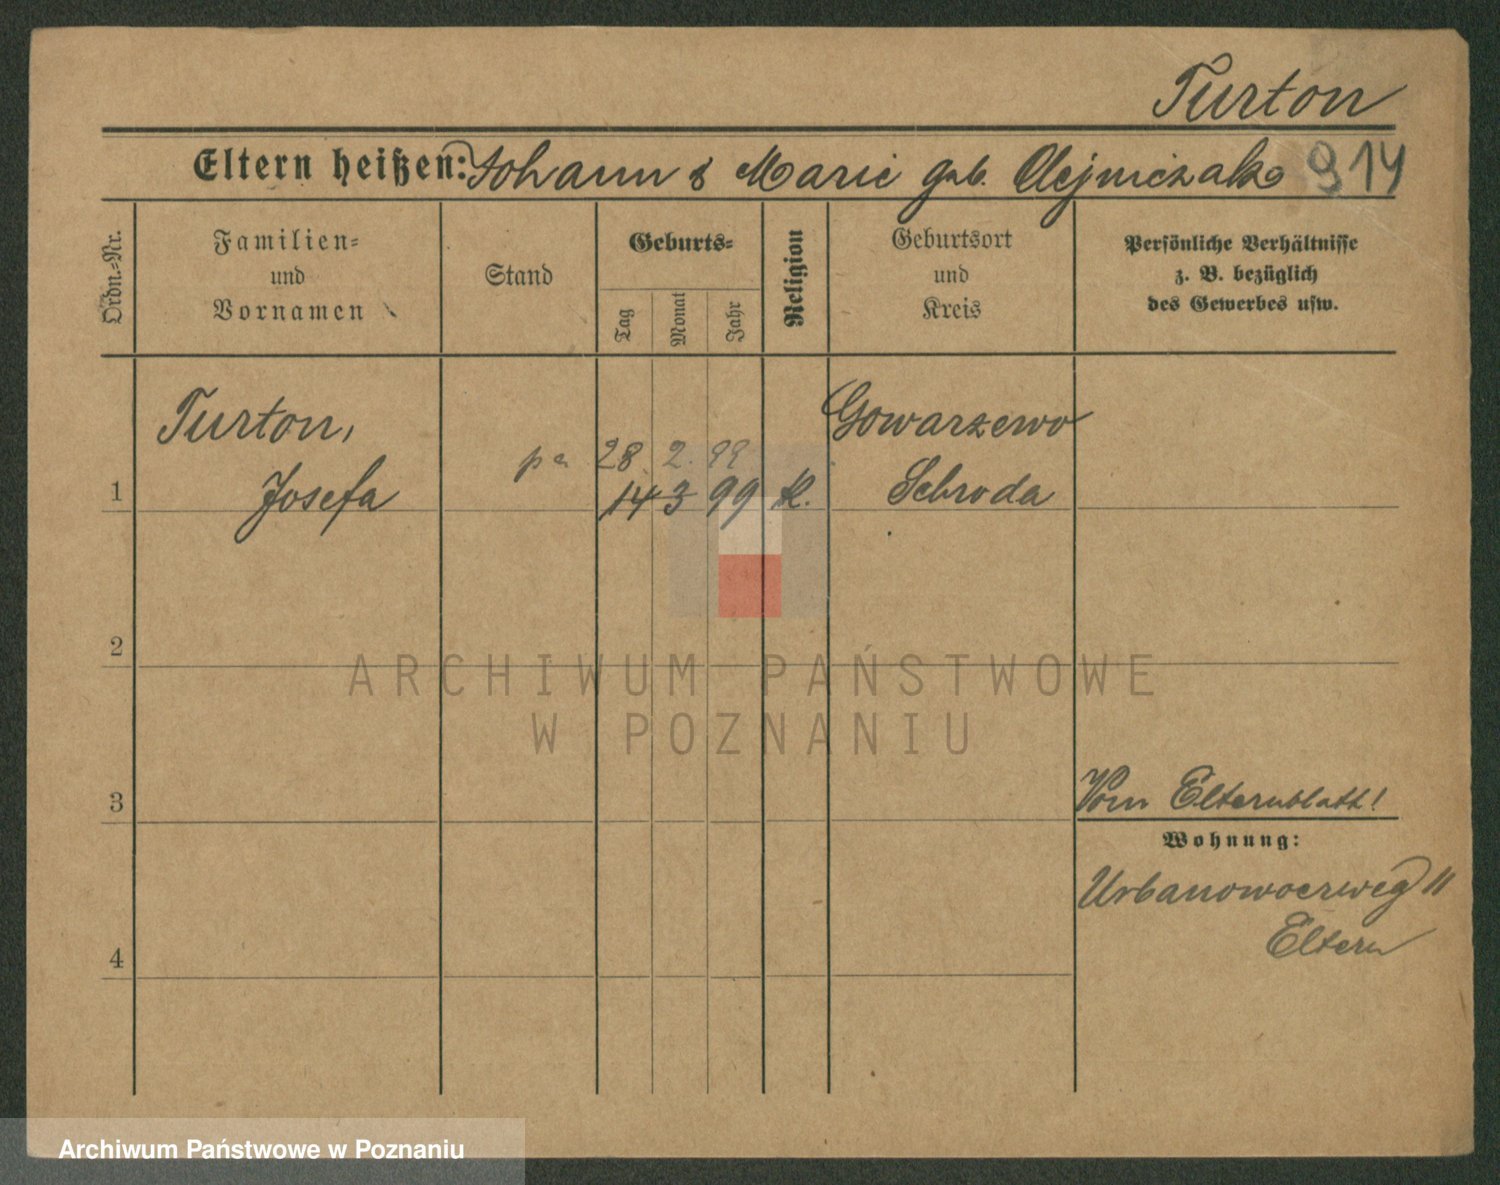 Turton
Eltern heißen: Johann & Marie geb. Olejniczak 914
Ordn.-Nr.
Familien-
und
Vornamen
Stand
Geburts-
Tag
Monat
Jahr
Religion
Geburtsort
und
Kreis
Persönliche Verhältnisse
z. B. bezüglich
des Gewerbes usw.
Turton, Gowarzewo
28. 2. 99
1 Josefa 14 3 99 K. Schroda
2
ARCHIWUM PAŃSTWOWE
W POZNANIU
Vom Elternblatt!
3
Wohnung:
Urbanowoerweg 11
Eltern
4
Archiwum Państwowe w Poznaniu